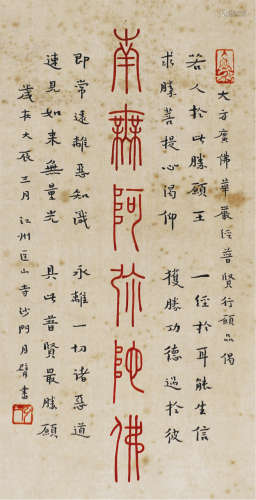 大方廣佛華嚴經普賢行願品偈
若人於此勝願王 一經於耳能生信
求勝菩提心渴仰 獲勝功德過於彼
南無阿弥陀佛
即常遠離惡知識 永離一切諸惡道
速見如來無量光 具此普賢最勝願
歲在大辰三月江州匡山寺沙門月臂書